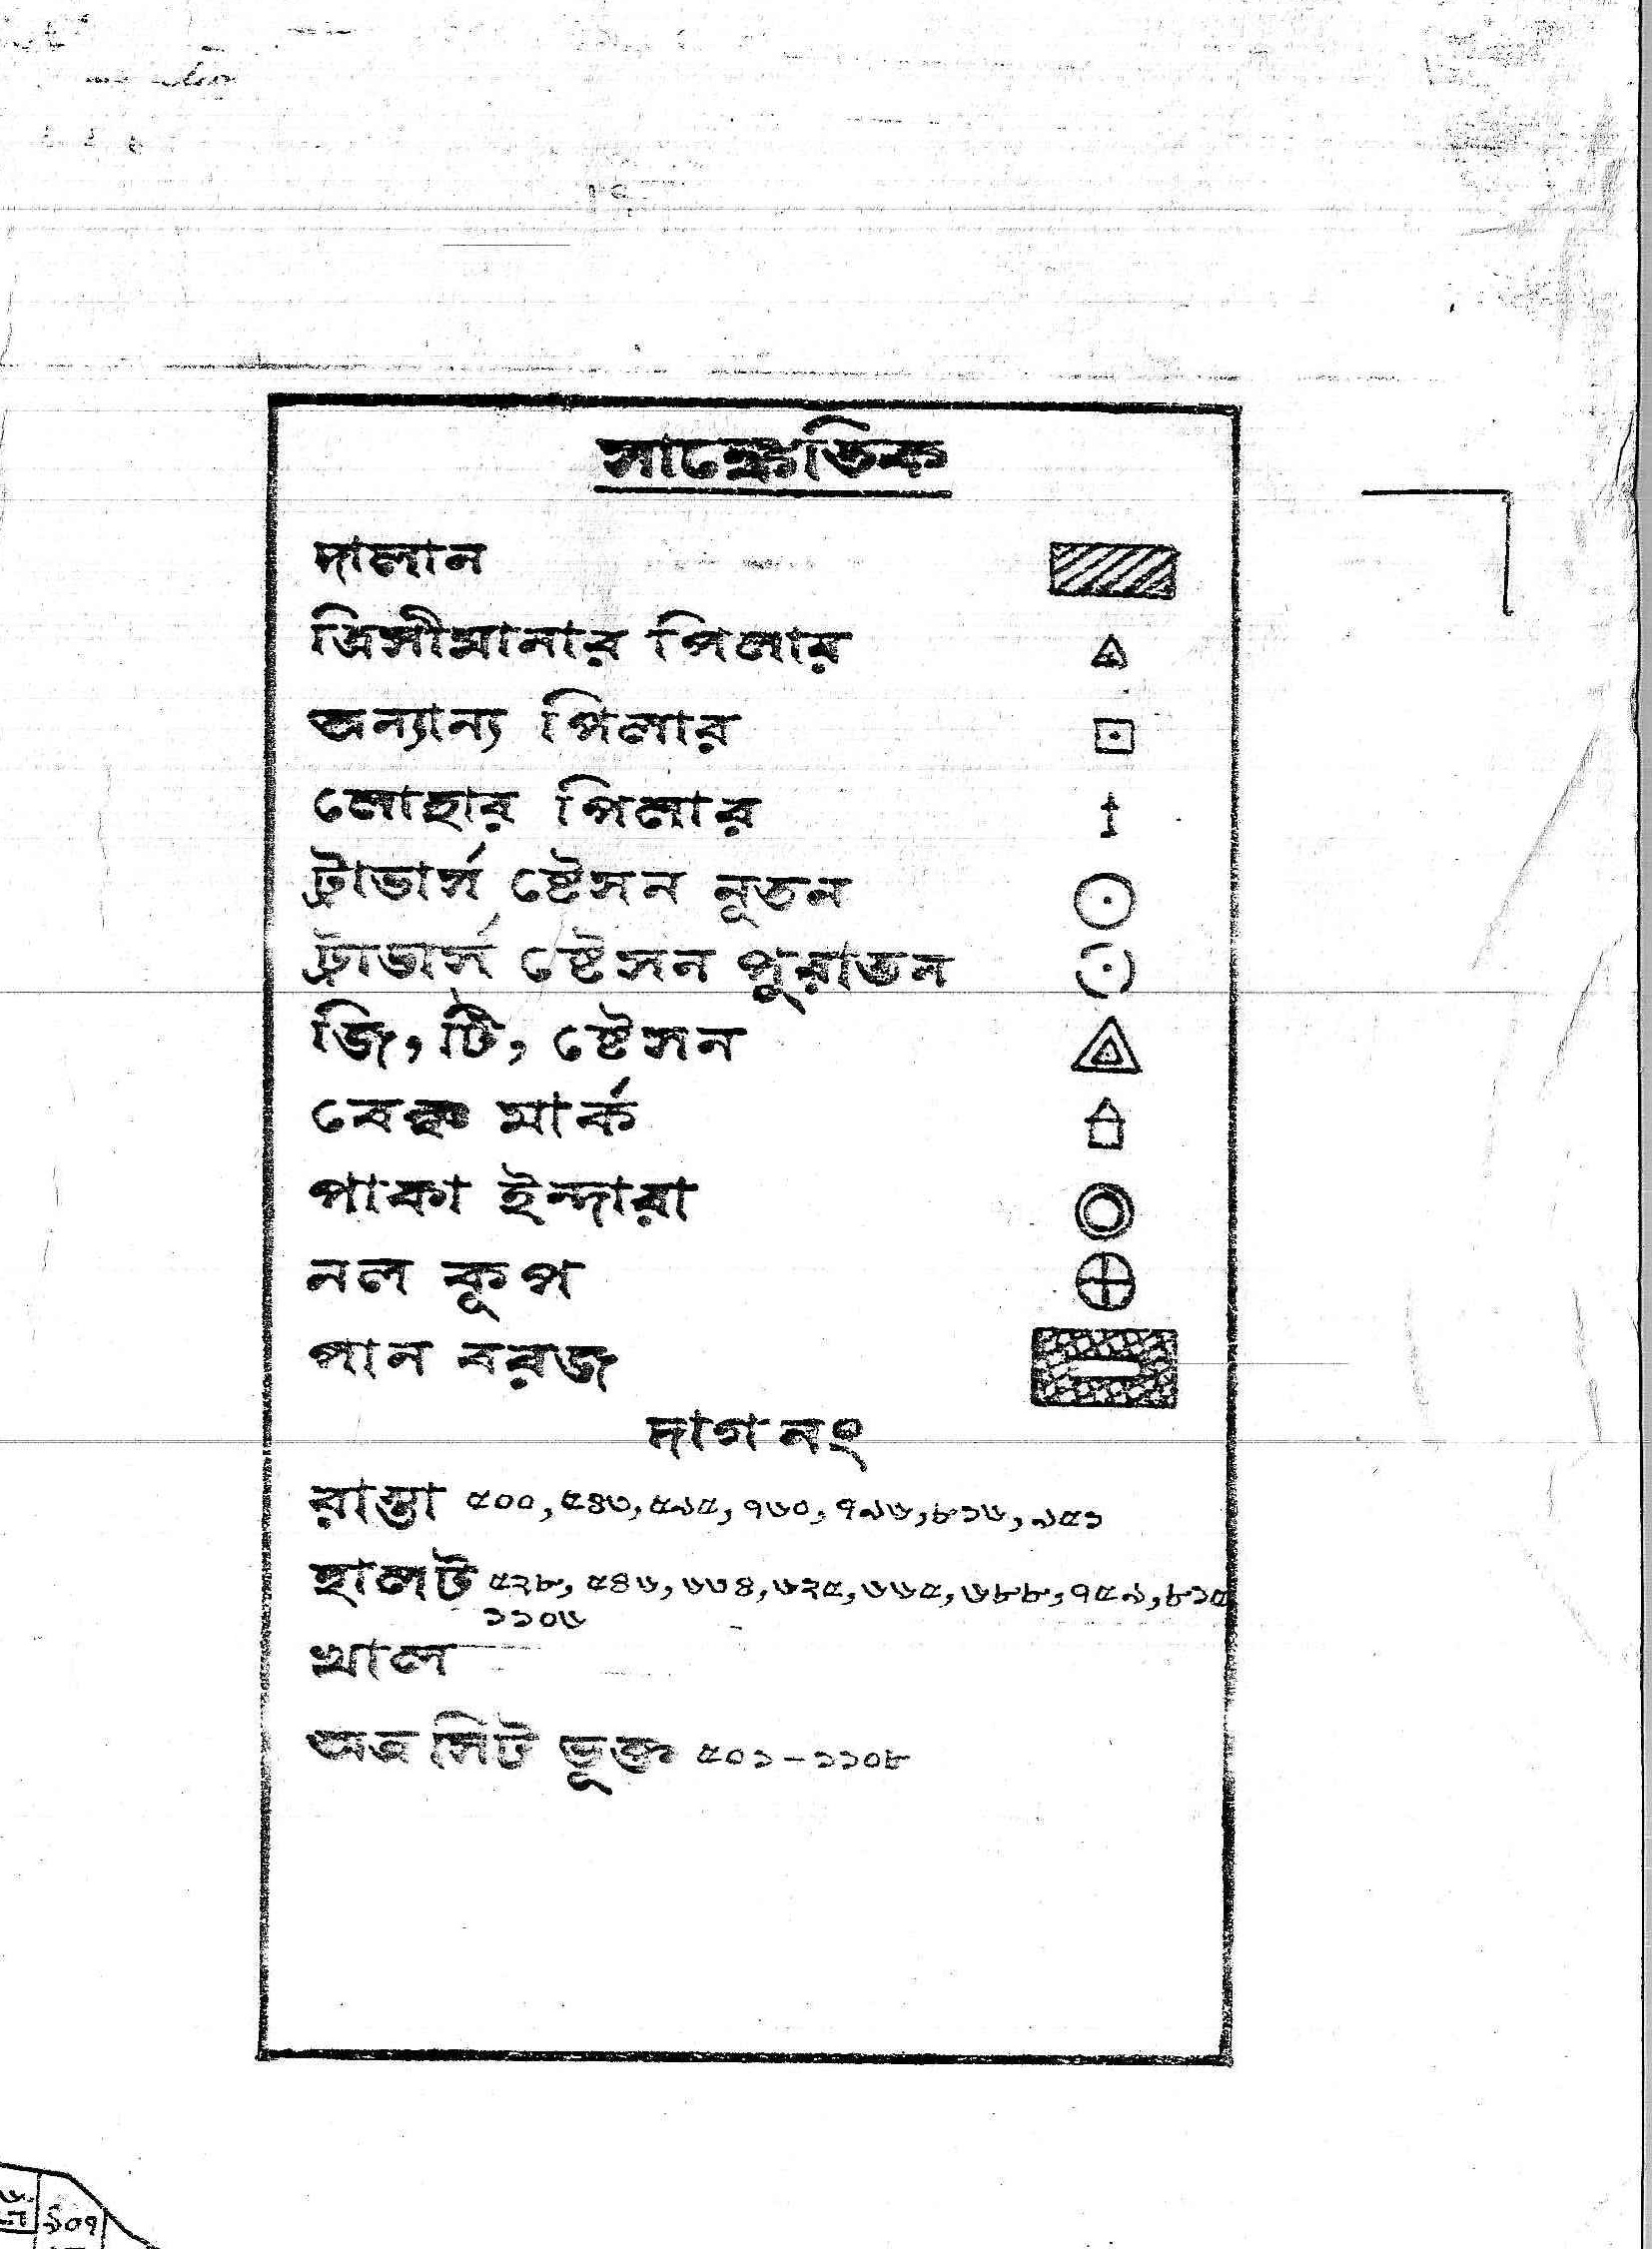 সাঙ্কেতিক
দালান
ত্রিসীমানার পিলার
অন্যান্য পিলার
লোহার পিলার
ট্রাভার্স ষ্টেসন নূতন
ট্রাভার্স ষ্টেসন পুরাতন
জি, টি, ষ্টেসন
বেঞ্চ মার্ক
পাকা ইন্দারা
নল কূপ
পান বরজ
দাগ নং
রাস্তা ৫০০, ৫৪৩, ৫৯৫, ৭৬০, ৭৯৬, ৮১৬, ৯৫১
হালট ৫২৮, ৫৪৬, ৬৩৪, ৬২৫, ৬৬৫, ৬৮৮, ৭৫৯, ৮১৫
১১০৬
খাল
অত্র সিট ভূক্ত ৫০১-১১০৮